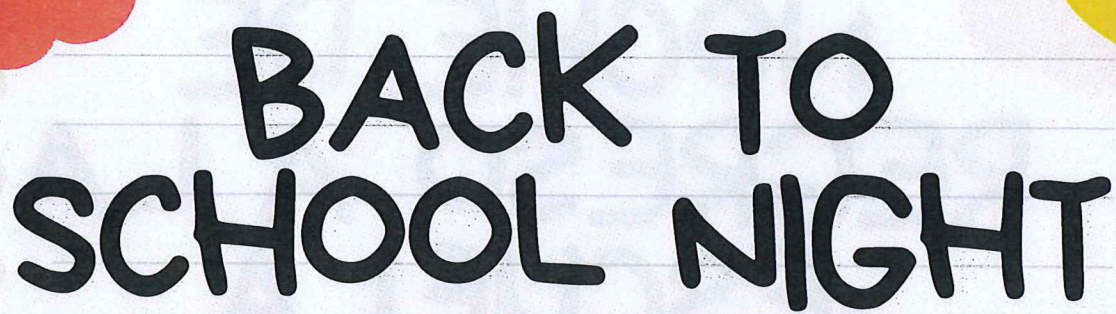 BACK TO
SCHOOL NIGHT